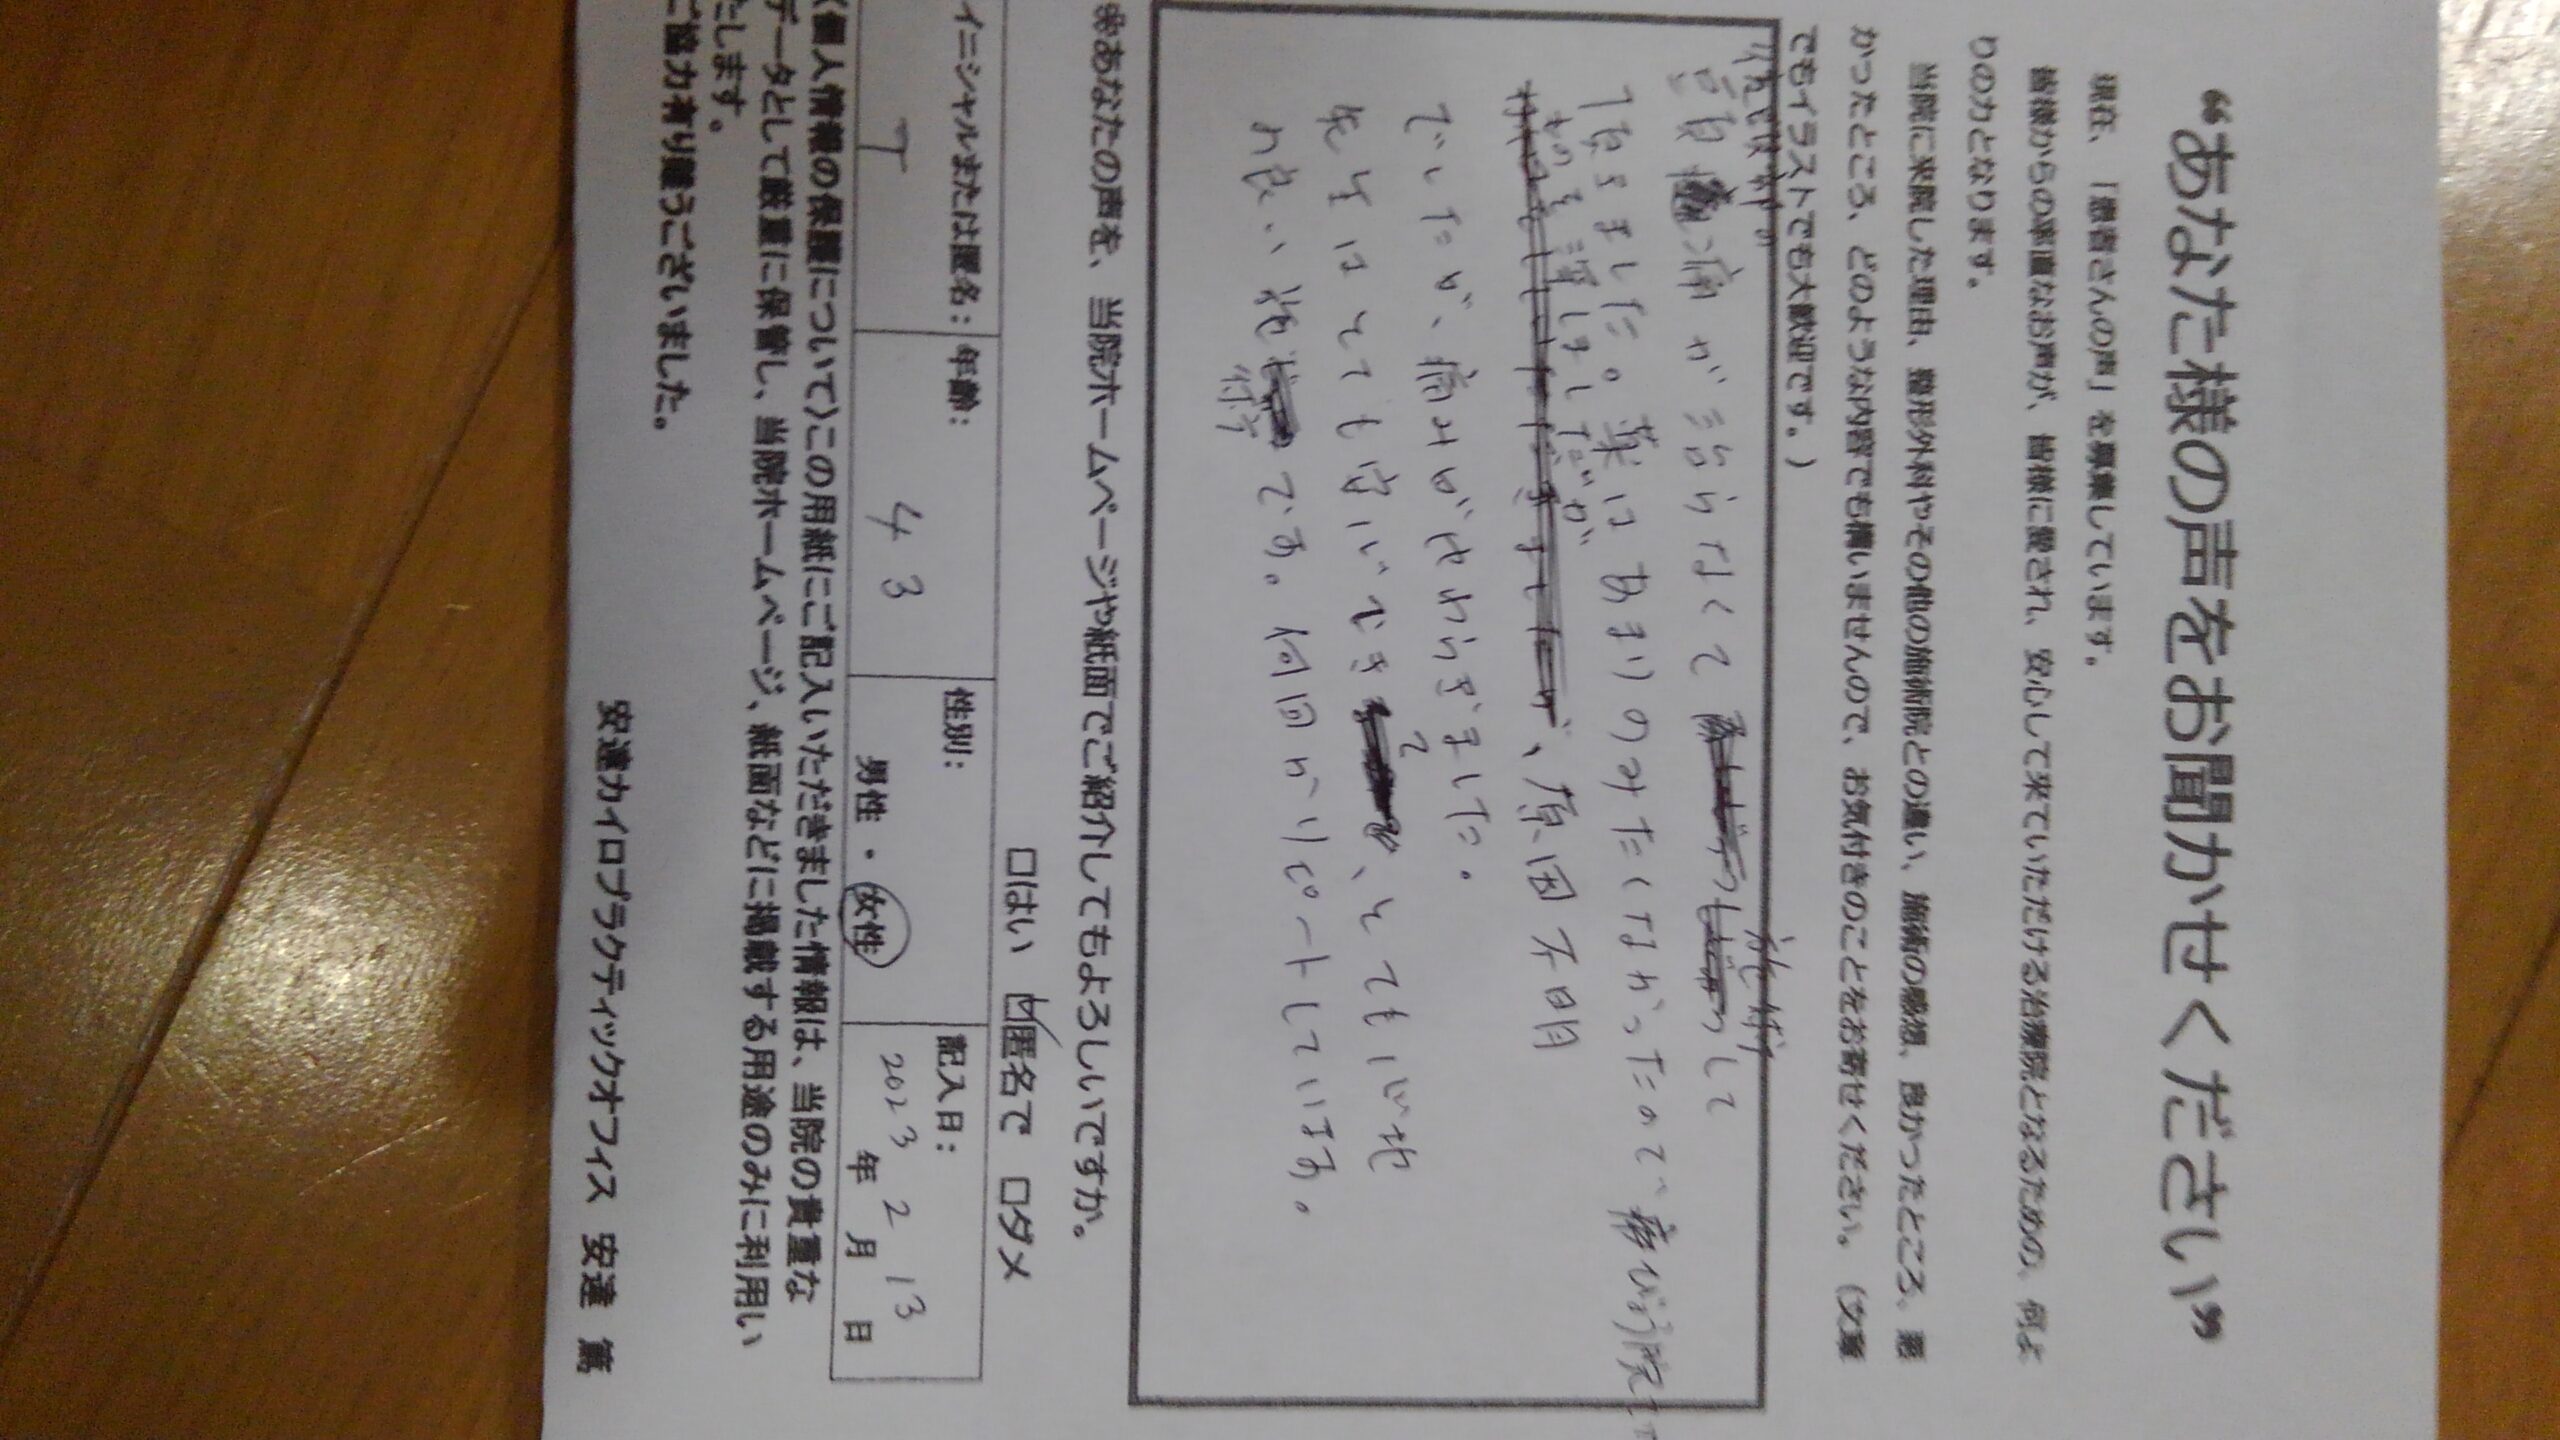 “あなた様の声をお聞かせください”
現在、「患者さんの声」を募集しています。
皆様からの率直なお声が、皆様に愛され、安心して来ていただける治療院となるための、何よ
りの力となります。
当院に来院した理由、整形外科やその他の施術院との違い、施術の感想、良かったところ、悪
かったところ、どのような内容でも構いませんので、お気付きのことをお寄せください。（文章
でもイラストでも大歓迎です。）
後頭部の
頭痛が治らなくて 施術して
頂きました。薬はあまりのみたくなかったので、病びょう院で
も診察はしたが、原因不明
でしたが、痛みがやわらぎました。
先生はとても
て、とても心地
良い施術です。何回かリピートしています。
※あなたの声を、当院ホームページや紙面でご紹介してもよろしいですか。
□はい ☑匿名で □ダメ
イニシャルまたは匿名： 年齢： 性別： 記入日：
T 43 男性・女性 2023年2月13日
〈個人情報の保護について〉この用紙にご記入いただきました情報は、当院の貴重な
データとして厳重に保管し、当院ホームページ、紙面などに掲載する用途のみに利用い
たします。
ご協力有り難うございました。
安達カイロプラクティックオフィス 安達 篤